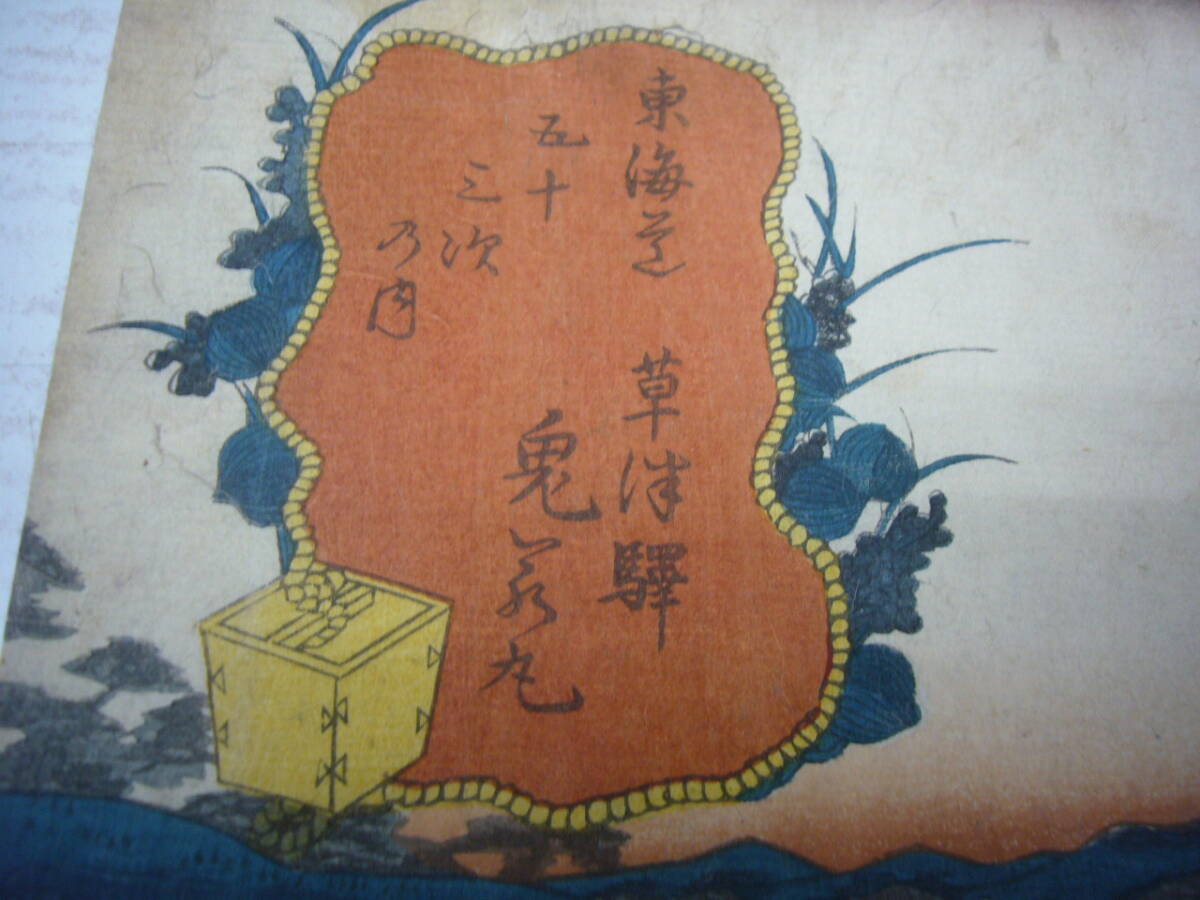 東海道
五十
三次
乃内
草津驛
鬼若丸